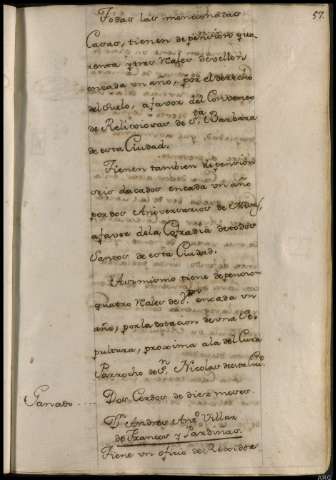 57.
Todas las mencionadas
Casas, tienen de pension qua
renta y tres R.s de vellon
encada un año, por el derecho
del Suelo, afavor del Convento
de Religiosas de S.ta Barbara
de esta Ciudad.
Tienen tambien de pension
seis ducados encada un año
por dos Aniversarios de Misas,
afavor de la Cofradia de todos
Santos de esta Ciudad.
Asi mismo tiene de pension
quatro R.s de encada un
año, por la dotacion de una Se
pultura, proxima ala del Cura
Parrocho de S.n Nicolas de esta
Ganado Dos Cerdos de diez meses
D.n Andres Ant.o Villar
de Francos y Sardinas
Tiene un oficio de Rexidor